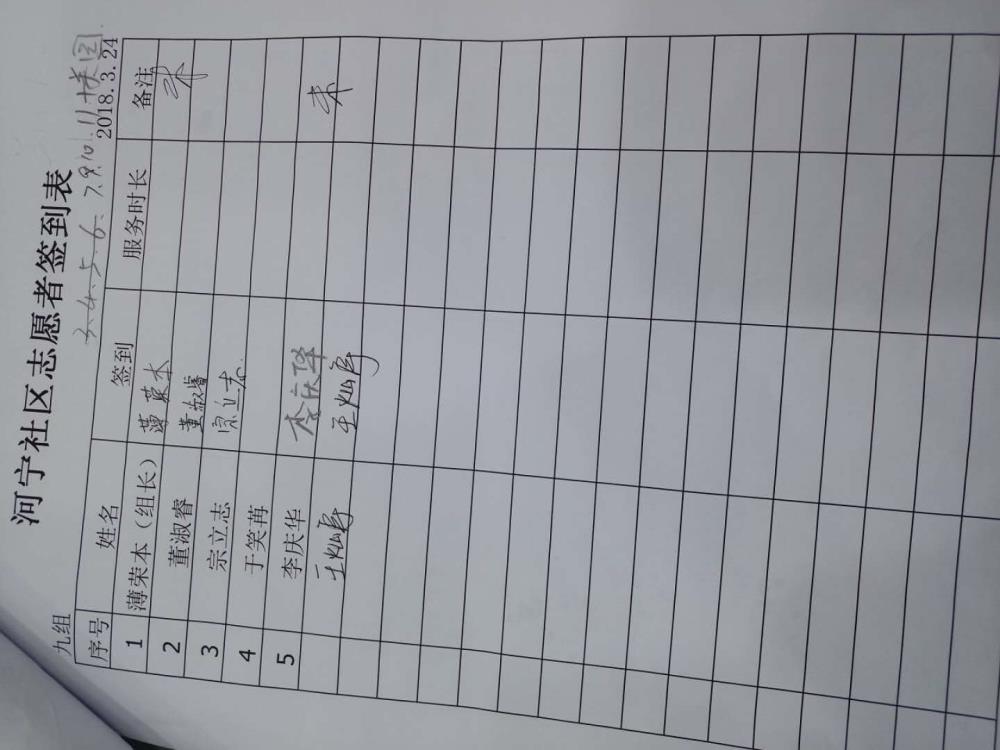 河宁社区志愿者签到表
3.4.5.6.7.9.10.11楼园
九组 2018.3.24
序号 姓名 签到 服务时长 备注
1 薄荣本（组长） 薄荣本
2 董淑睿 董淑睿
3 宗立志 宗立志
4 于笑苒
5 李庆华 李庆华